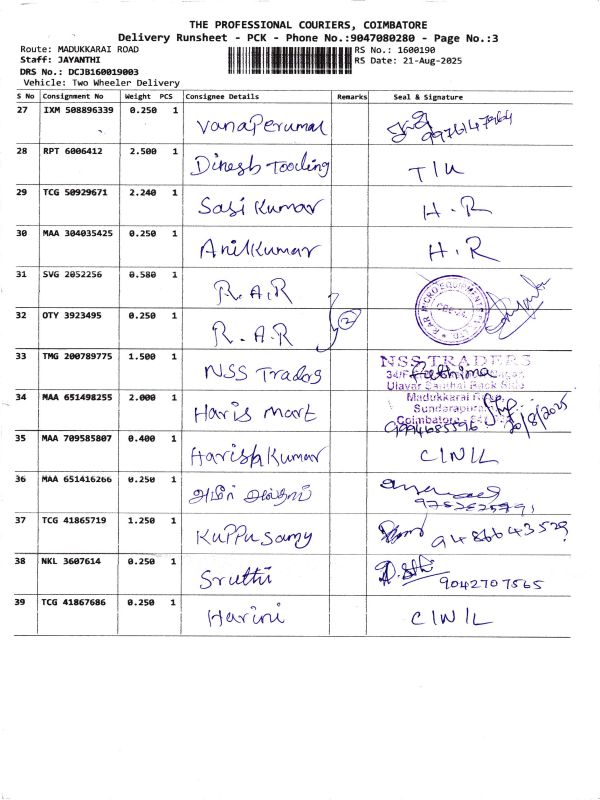 THE PROFESSIONAL COURIERS, COIMBATORE
Delivery Runsheet - PCK - Phone No.:9047080280 - Page No.:3
Route: MADUKKARAI ROAD
RS No.: 1600190
Staff: JAYANTHI
RS Date: 21-Aug-2025
DRS No.: DCJB160019003
Vehicle: Two Wheeler Delivery
S No Consignment No Weight PCS Consignee Details Remarks Seal & Signature
27 IXM 508896339 0.250 1 VanaPerumal 9976147964
28 RPT 6006412 2.500 1 Dinesh Tooling T/U
29 TCG 50929671 2.240 1 Sasi Kumar H.R
30 MAA 304035425 0.250 1 AnilKumar H.R
31 SVG 2052256 0.580 1 R.A.R
32 OTY 3923495 0.250 1 R.A.R 2
33 TMG 200789775 1.500 1 NSS Traders NSS TRADERS
Fathima
Ulavar Santhai Back Side
34 MAA 651498255 2.000 1 Haris Mart Madukkarai
Sundarapuram
Coimbatore
9994685596 20/8/2025
35 MAA 709585807 0.400 1 HarishKumar C/N/L
36 MAA 651416266 0.250 1
37 TCG 41865719 1.250 1 KuppuSamy 9486643529
38 NKL 3607614 0.250 1 Sruthi 9042707565
39 TCG 41867686 0.250 1 Harini C/N/L